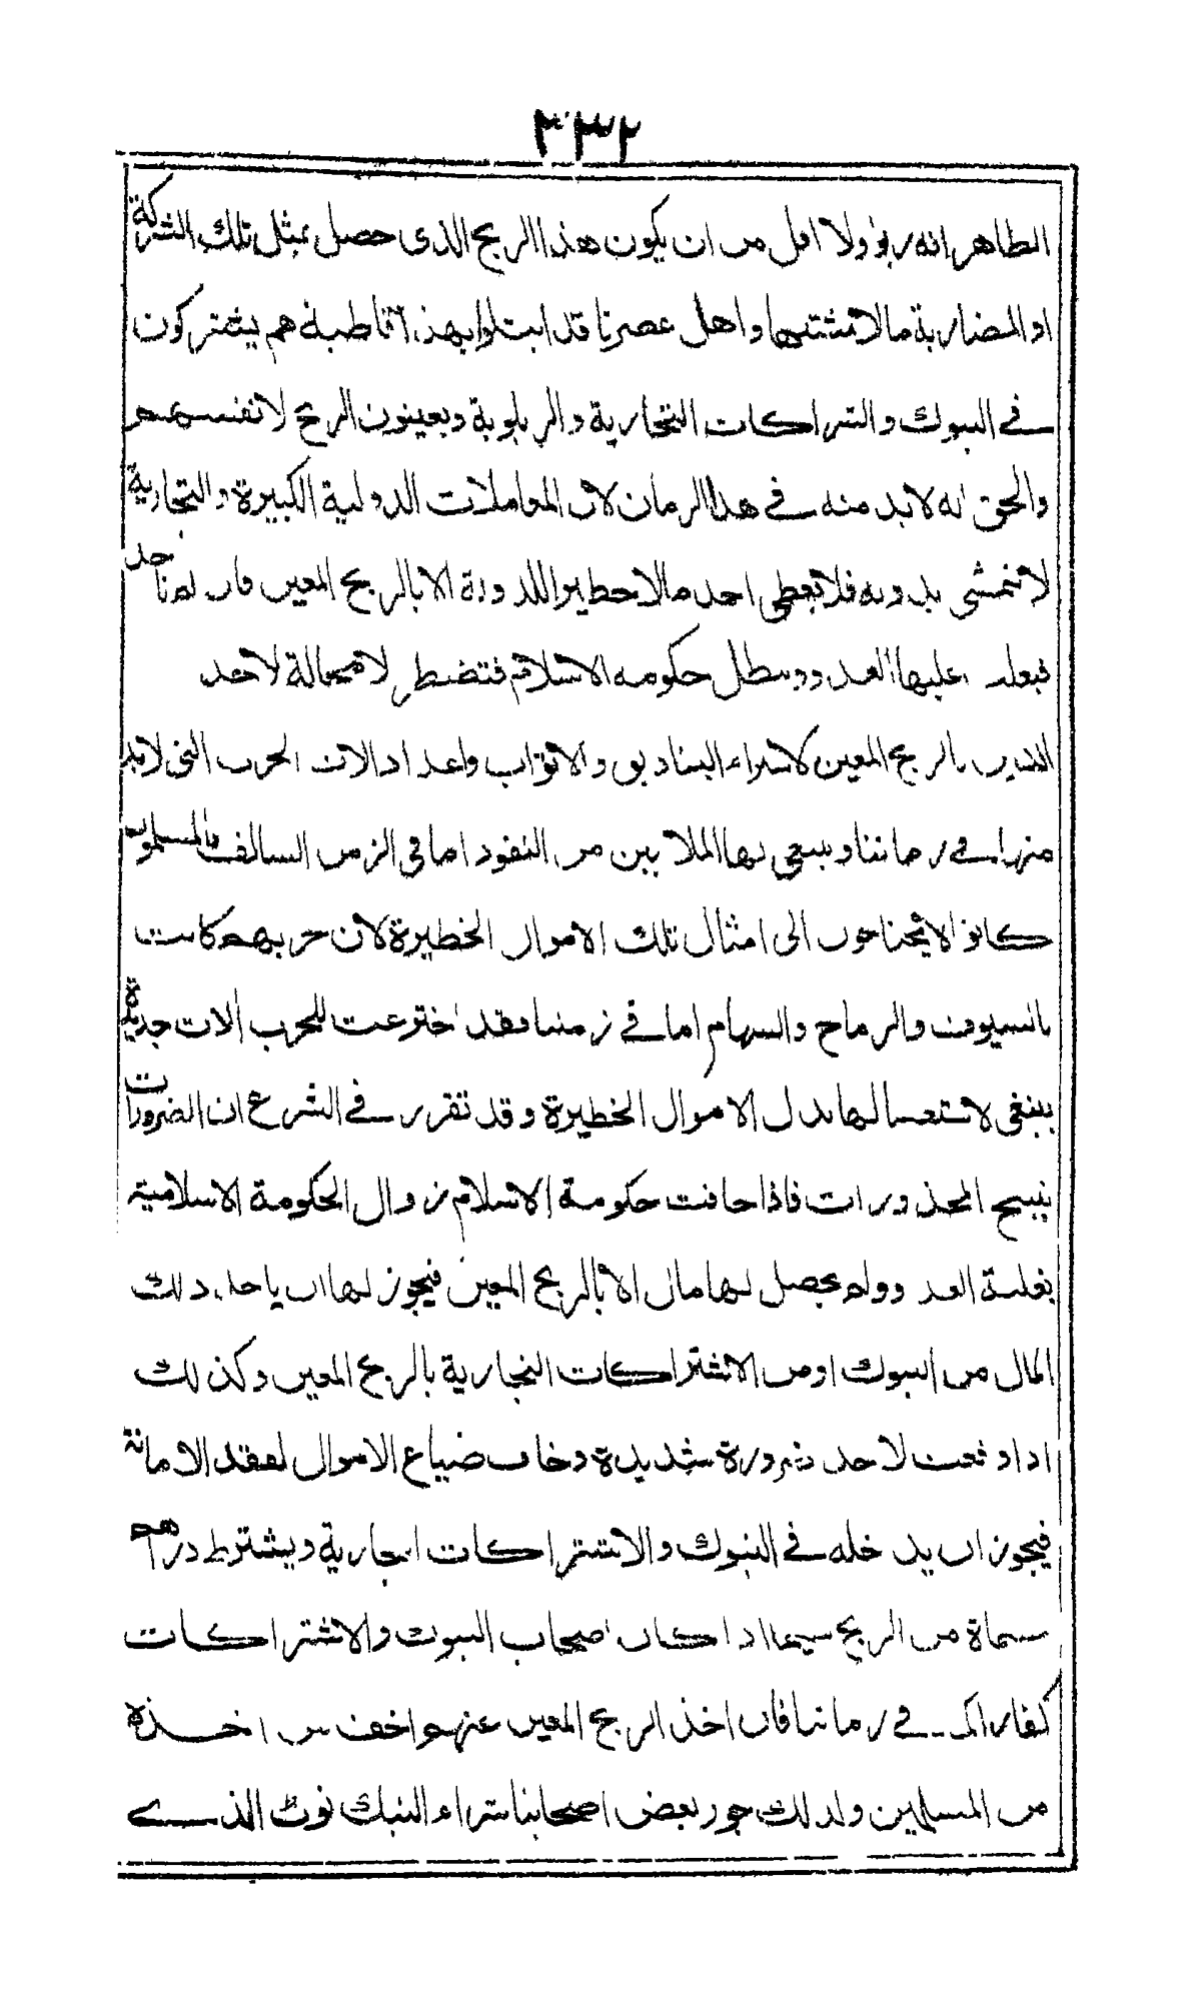 ٣٣٢
الظاهر انه ربو ولا اقل من ان يكون هذا الربح الذى حصل بمثل تلك الشركة
او المضاربة مالا مشتبها واهل عصرنا قد ابتلوا بهذا قاطبة هم يشتركون
فے البنوك والشراكات التجارية والريلوية ويعينون الربح لانفسهم
والحق انه لابد منه فے هذا الزمان لان المعاملات الدولية الكبيرة والتجارية
لا تتمشى بدونه فلا يعطى احد مالا خطيرا للدولة الا بالربح المعين فان لم تاخذ
فيغلب عليها العدو ويبطل حكومة الاسلام فتضطر لا محالة لاخذ
الدين بالربح المعين لاشراء البناديق والاتواب واعداد الات الحرب التى لابد
منها فے زماننا وينبغى لها الملايين من النقود اما فى الزمن السالف فالمسلمون
كانوا لا يحتاجون الى امثال تلك الاموال الخطيرة لان حربهم كانت
بالسيوف والرماح والسهام اما فے زمننا فقد اخترعت للحرب الات جديدة
ينبغى لاستعمالها بدل الاموال الخطيرة وقد تقرر فے الشرع ان الضرورات
تبيح المحذورات فاذا خافت حكومة الاسلام زوال الحكومة الاسلامية
بغلبة العدو ولم يحصل لها مال الا بالربح المعين فيجوز لها ان ياخذ ذلك
المال من البنوك او من الاشتراكات التجارية بالربح المعين وكذلك
اذا وقعت لاحد ضرورة شديدة وخاف ضياع الاموال لفقد الامانة
فيجوز ان يدخله فے البنوك والاشتراكات التجارية ويشترط دراهم
مسماة من الربح سيما اذا كان اصحاب البنوك والاشتراكات
كفارا كما فے زماننا فان اخذ الربح المعين عنهم اخف من اخذه
من المسلمين ولذلك جوز بعض اصحابنا شراء البنك نوٹ الذے